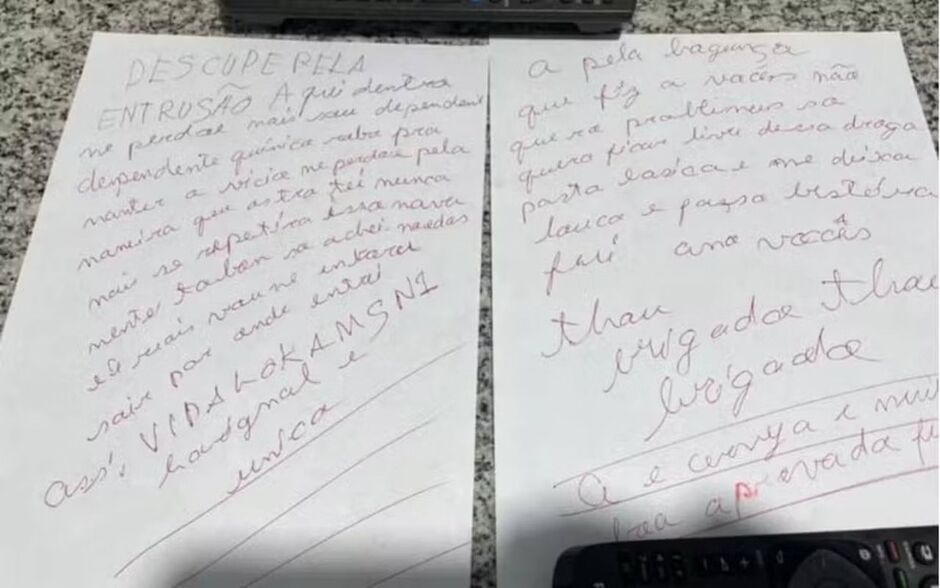 DESCUPE PELA
ENTRUSÃO Aqui dentra
me perdoe mais sou dependente
despendente quimica rabo pra
manter a vicio me perdoe pela
maneira que astra tei nunca
mais se repetira essa nava
mente taben so achei moedas
e mais vou me
sair por onde entrei
ass: VIDALOKAMSN1
e
unica
a pela bagunça
que fiz a vocês não
quero problemas so
quero ficar livre dessa droga
pasta basica e me deixa
louco e
fui amo vocês
thau
brigadoe thau
brigadoe
a e cerveja e mui
boa aprovada fu